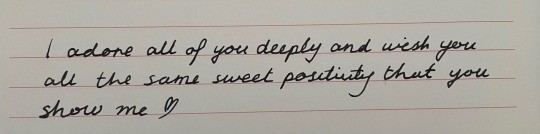 I adore all of you deeply and wish you
all the same sweet positivity that you
show me ♡